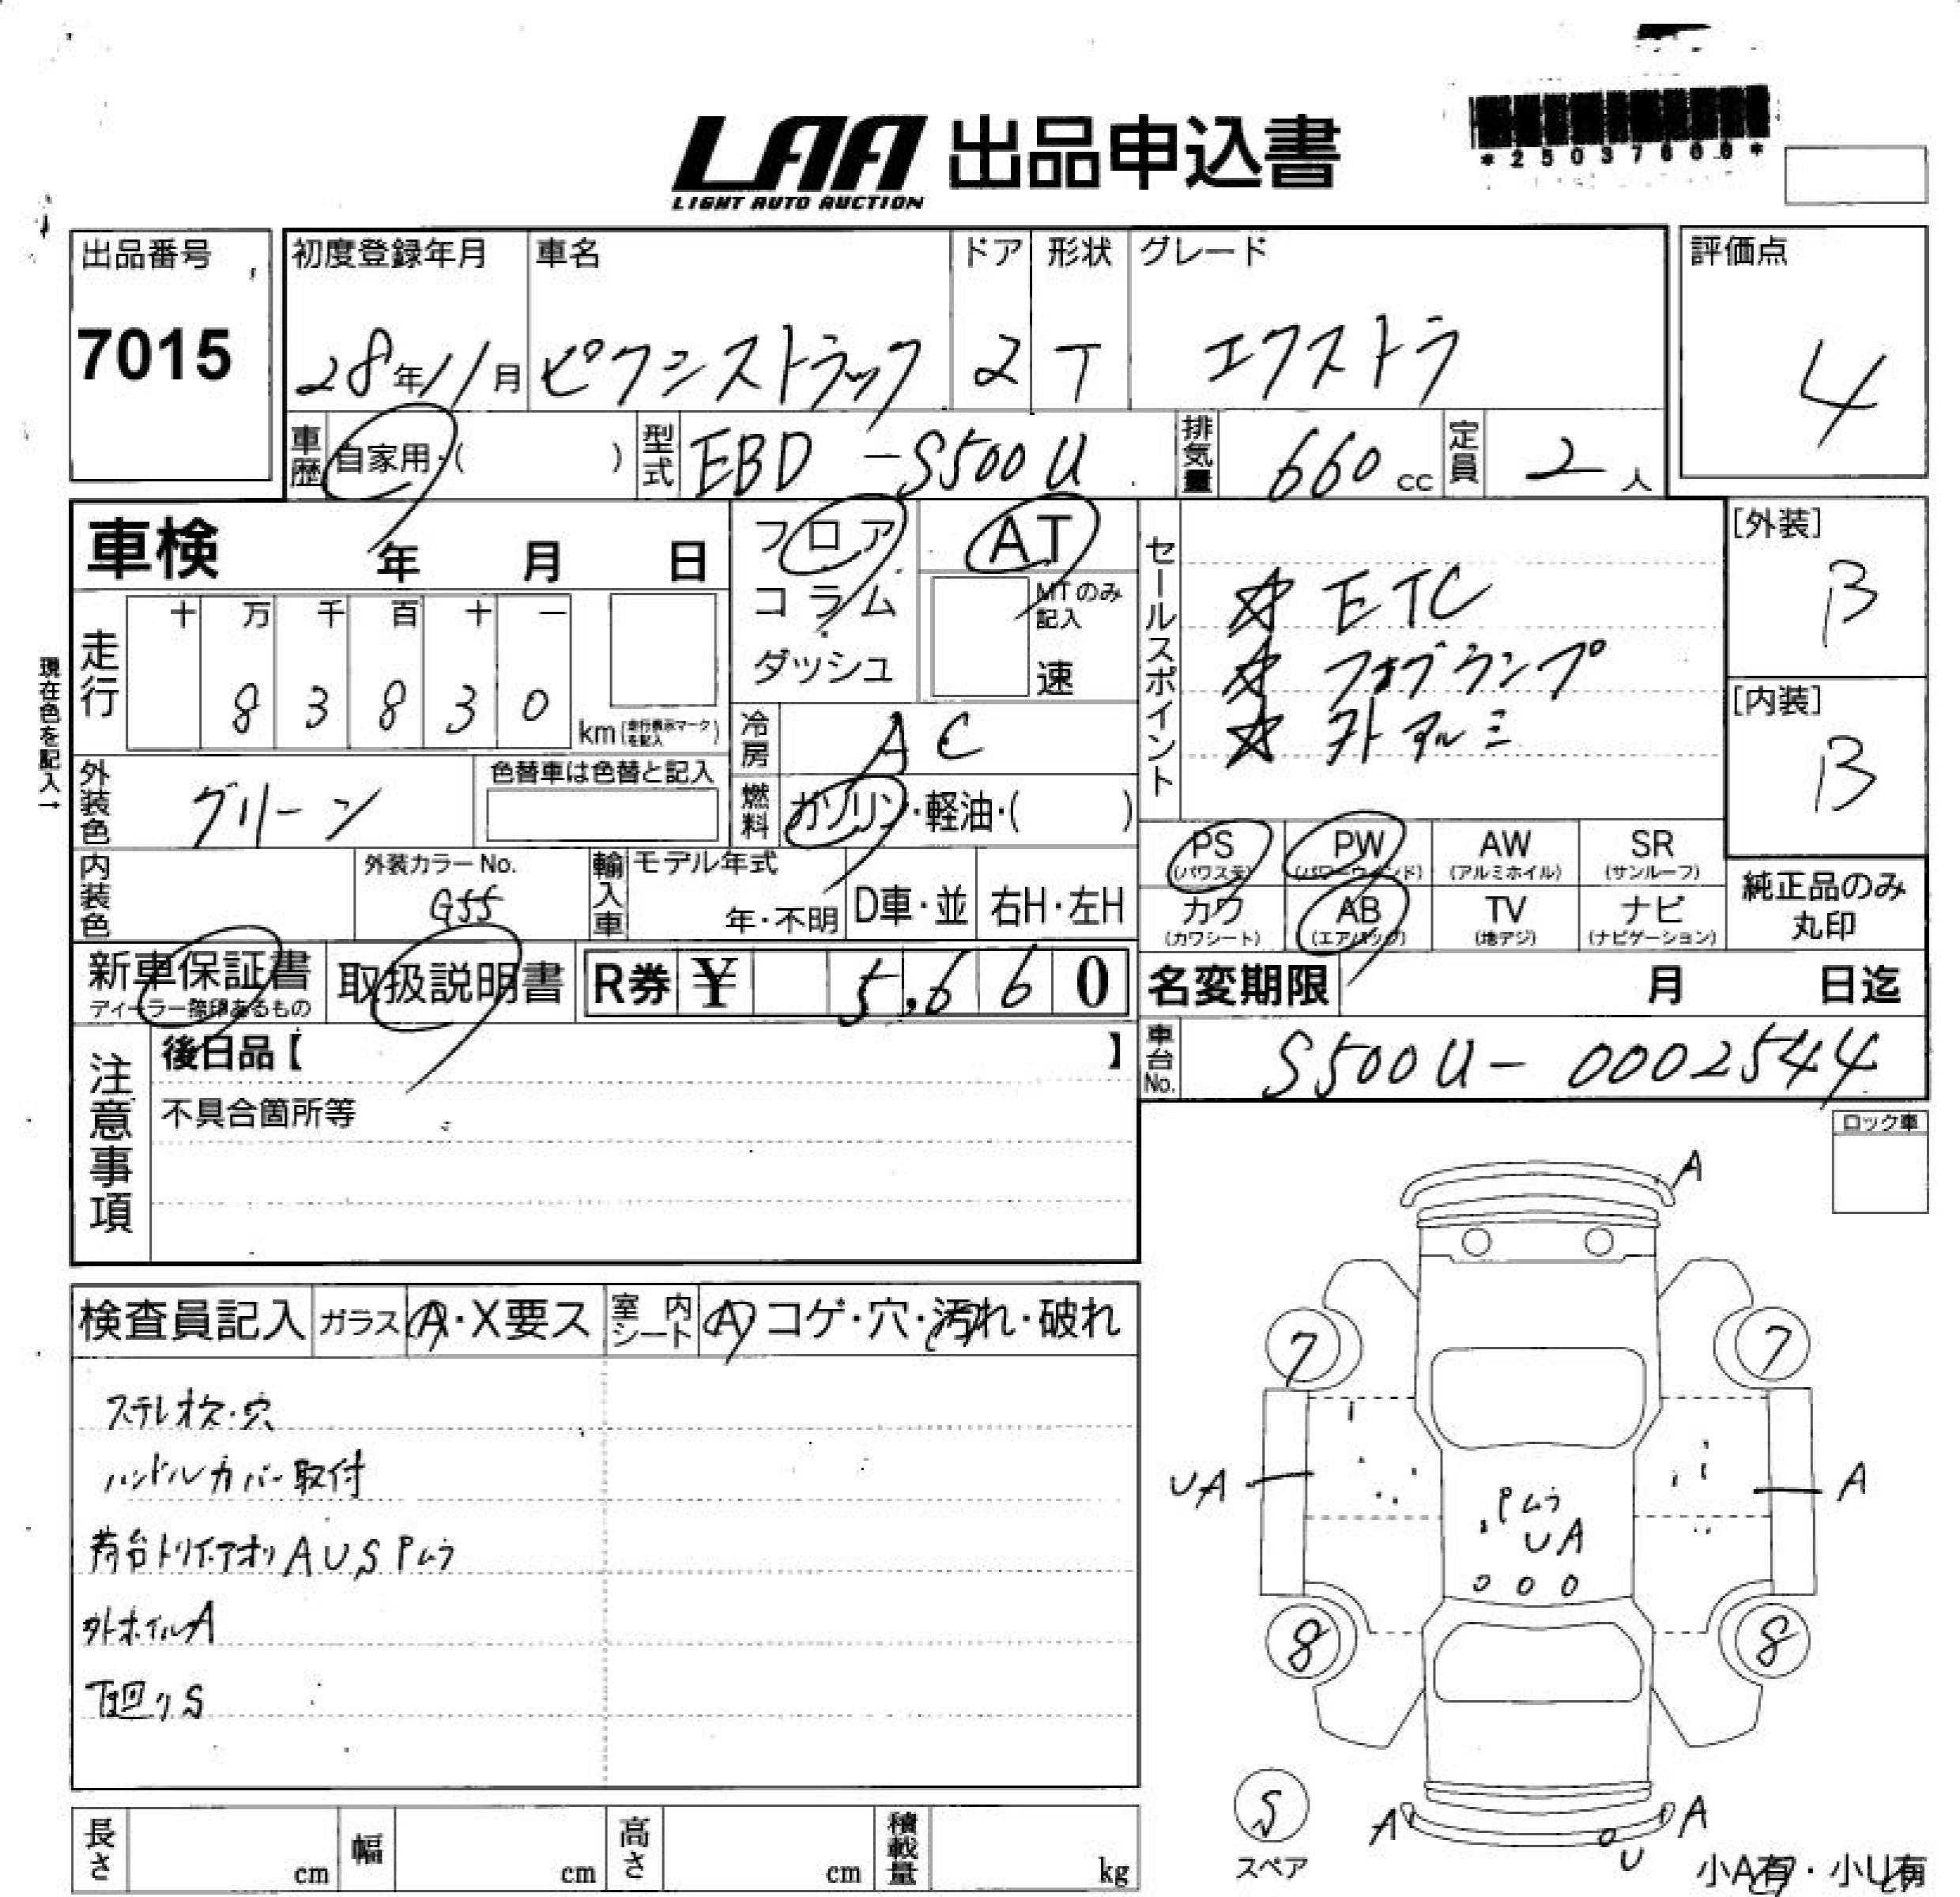 LAA 出品申込書
LIGHT AUTO AUCTION
出品番号
7015
初度登録年月 車名 ドア 形状 グレード
28年11月 ピクシストラック 2 T エクストラ
評価点
4
車歴 自家用・( ) 型式 EBD-S500U 排気量 660cc 定員 2人
車検 年 月 日
フロア AT
コラム MTのみ記入
ダッシュ 速
走行 十 万 千 百 十 一
8 3 8 3 0 km(走行表示マークを記入)
現在色を記入→
冷房 AC
セールスポイント
☆ ETC
☆ フォグランプ
☆ 外アルミ
[外装]
B
[内装]
B
外装色 グリーン 色替車は色替と記入
燃料 ガソリン・軽油・( )
内装色 外装カラーNo. G55
輸入車 モデル年式 年・不明 D車・並 右H・左H
PS (パワステ) PW (パワーウィンド) AW (アルミホイル) SR (サンルーフ)
カワ (カワシート) AB (エアバッグ) TV (地デジ) ナビ (ナビゲーション)
純正品のみ丸印
新車保証書 ディーラー捺印あるもの 取扱説明書 R券 ¥ 5,660
名変期限 月 日迄
車台No. S500U-0002544
注意事項
後日品【 】
不具合箇所等
ロック車
検査員記入 ガラス A・X要ス 室内シート A コゲ・穴・汚れ・破れ
ステレオ欠・穴
ハンドルカバー取付
荷台トリイ・アオリ AUS Pムラ
外ホイルA
下廻りS
A
7 7
UA A
Pムラ
UA
8 8
S
スペア
A A
U
小A有・小U有
長さ cm 幅 cm 高さ cm 積載量 kg